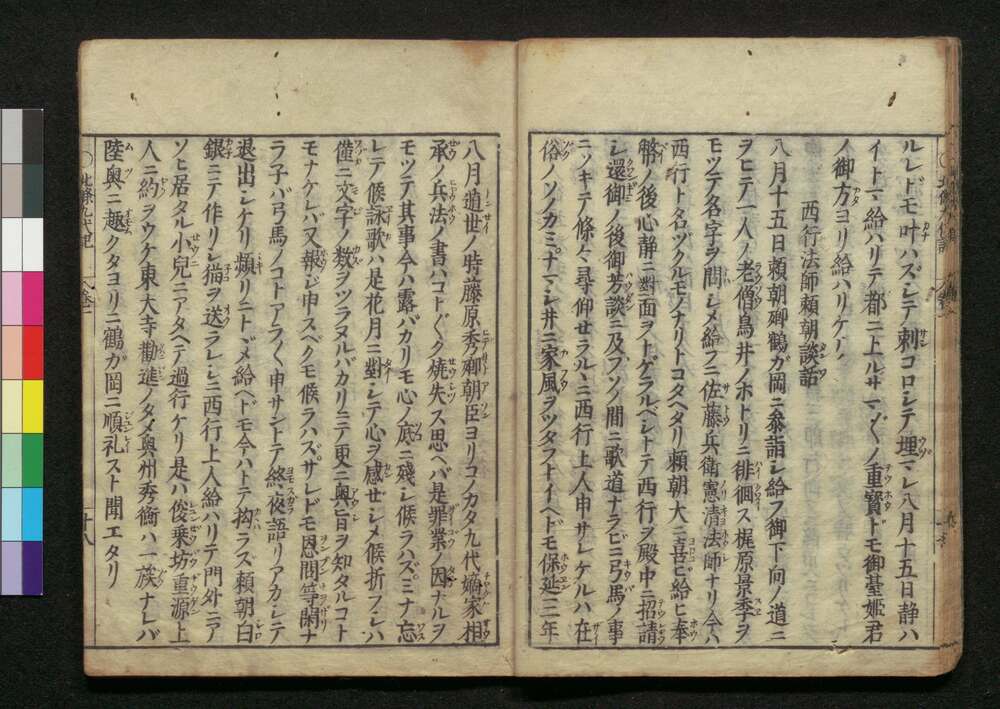 ルレドモ叶ハズシテ刺コロシテ埋マレ八月十五日静ハ
イトマ給ハリテ都ニ上ルサマ〲ノ重寳トモ御臺姫君
ノ御方ヨリ給ハリケリ
西行法師頼朝談話
八月十五日頼朝卿鶴ガ岡ニ参詣シ給フ御下向ノ道ニ
ヲヒテ一人ノ老僧鳥井ノホトリニ徘徊ス梶原景季ヲ
モツテ名字ヲ問シメ給フニ佐藤兵衛憲清法師ナリ今ハ
西行ト名ヅクルモノナリトコタヘタリ頼朝大ニ喜ヒ給ヒ奉
幣ノ後心静ニ對面ヲトゲラルベシトテ西行ヲ殿中ニ招請
シ還御ノ後御芳談ニ及ブソノ間ニ歌道ナラビニ弓馬ノ事
ニツキテ條々尋仰セラルヽニ西行上人申サレケルハ在
俗ノソノカミナマシ井ニ家風ヲツタフトイヘドモ保延三年
八月遁世ノ時藤原秀郷朝臣ヨリコノカタ九代嫡家相
承ノ兵法ノ書ハコト〲ク焼失ス思ヘバ是罪業ノ因ナルヲ
モツテ其事今ハ露バカリモ心ノ底ニ殘シ候ラハズミナ忘
レテ候詠歌ハ是花月ニ對シテ心ヲ感セシメ候折フシハ
僅ニ文字ノ数ヲツラヌルバカリニテ更ニ奥旨ヲ知タルコト
モナケレバ又報シ申スベクモ候ラハズサレドモ恩問等閑ナ
ラ子バ弓馬ノコトアラ〱申サントテ終夜語リアカシテ
退出シケリ頻リニトヾメ給ヘドモ今ハトテ拘ラズ頼朝ヨリ白
銀ニテ作リシ猫ヲ送ラレシニ西行上人給ハリテ門外ニア
ソヒ居タル小兒ニアタヘテ過行ケリ是ハ俊乗坊重源上
人ニ約ヲウケ東大寺勸進ノタメ奥州秀衡ハ一族ナレバ
陸奥ニ趣クタヨリニ鶴ガ岡ニ順礼スト聞エタリ
北條九代記 卷二 十八